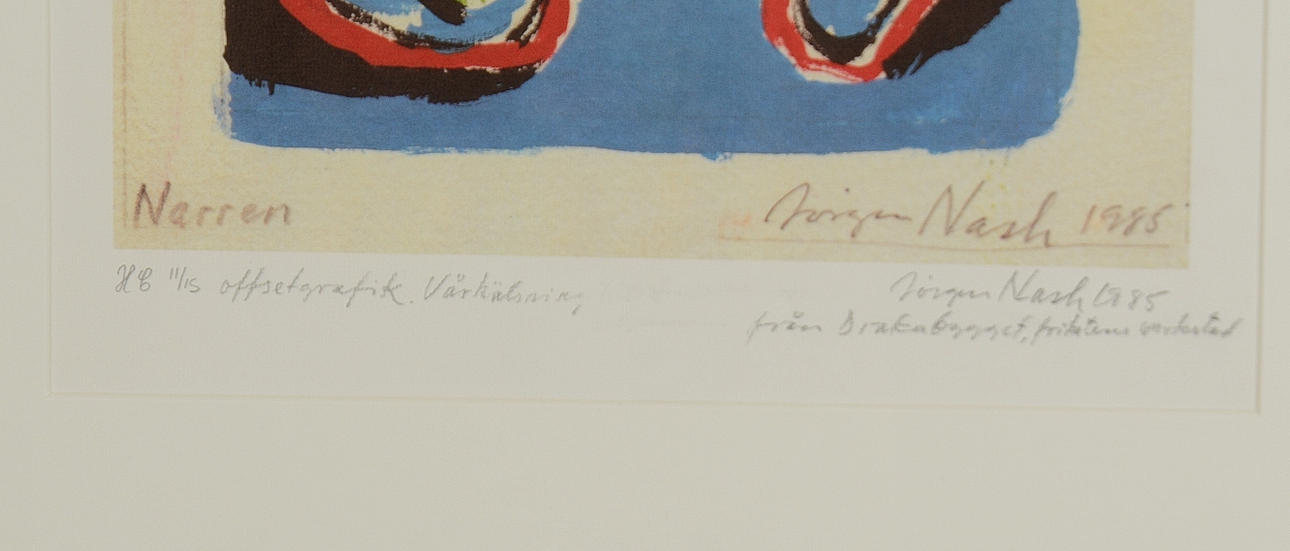 Narren
Jörgen Nash 1985
HC 11/15 offsetgrafik. Vårhälsning
Jörgen Nash 1985
från Drakabygget, frihetens verkstad